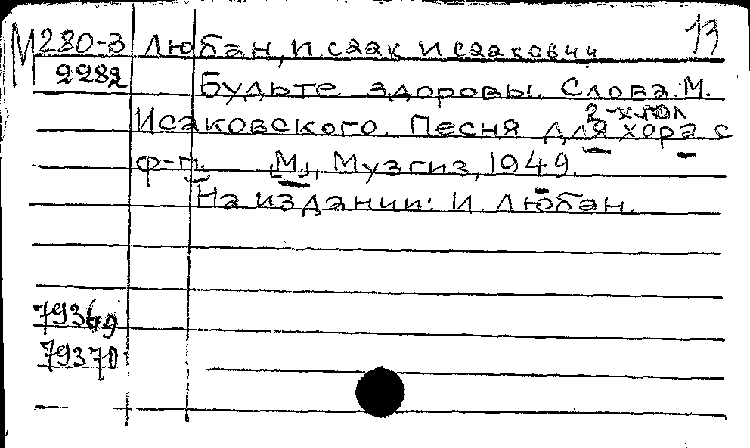 13
М 280-3 Любан, Исаак Исаакович
2282
Будьте здоровы. Слова М.
2-хгол
Исаковского. Песня для хора с
ф-п. [М.], Музгиз, 1949.
На издании: И. Любан.
79369
79370